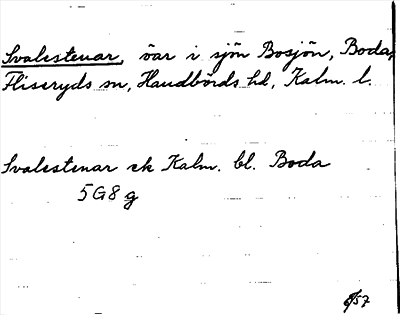 Svalestenar, öar i sjön Bosjön, Boda,
Fliseryds sn, Handbörds hd, Kalm. l.
Svalestenar ek Kalm. bl. Boda
5G8g
6/57